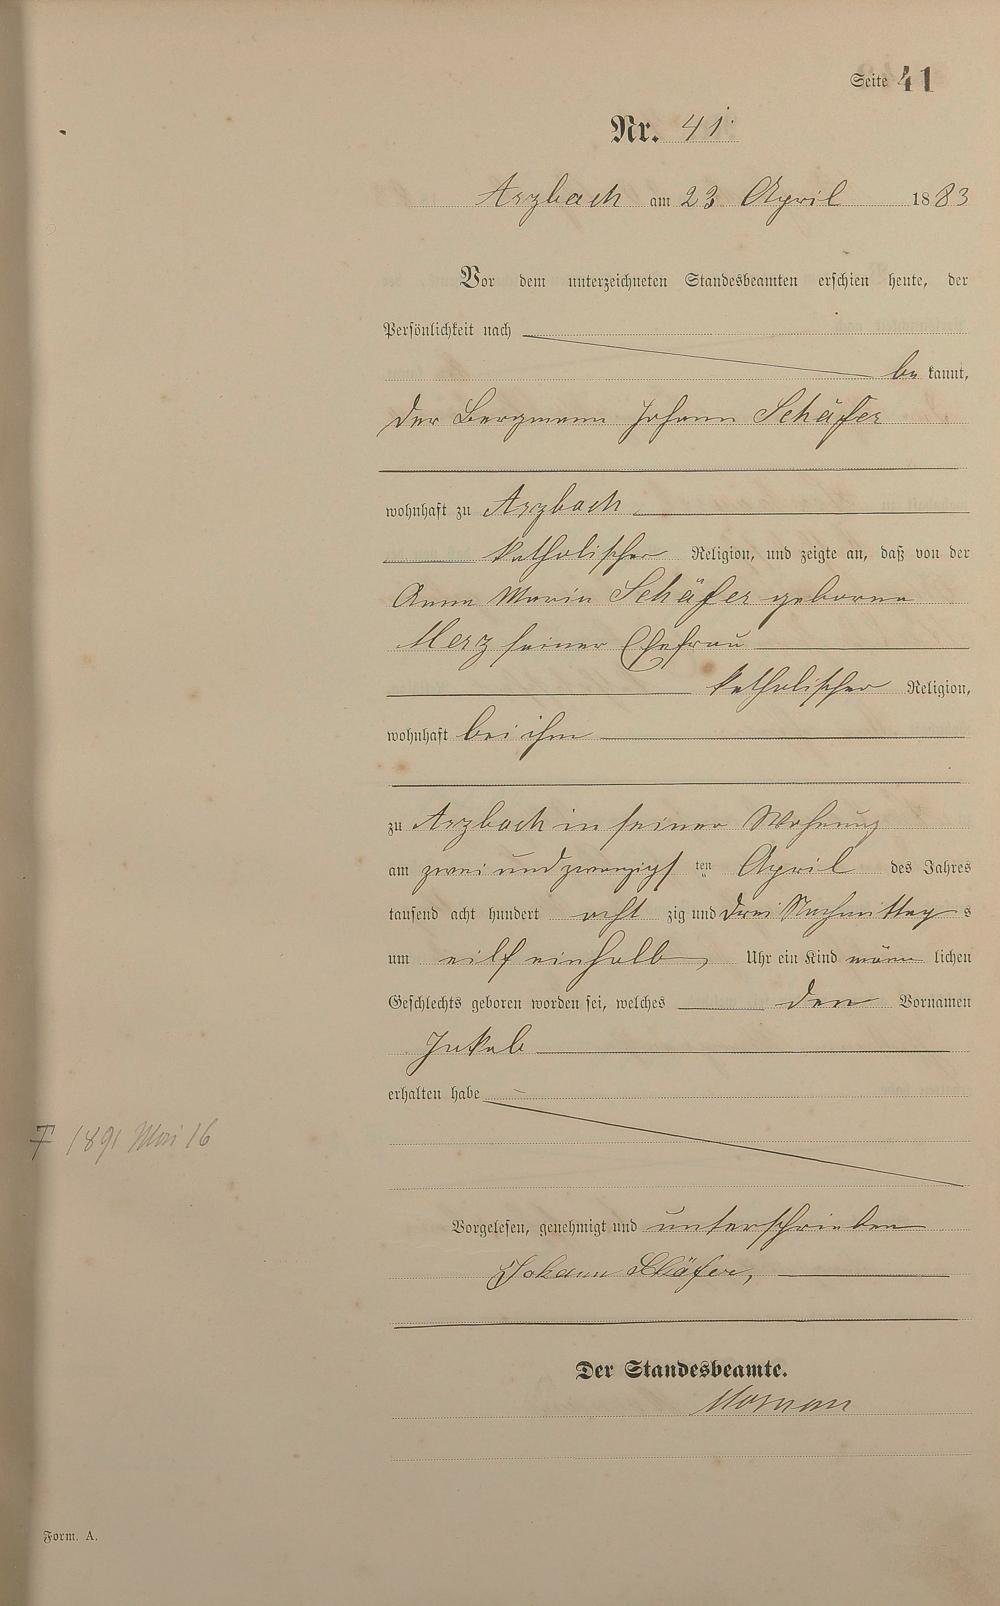 Seite 41
Nr. 41
Arzbach am 23 April 1883
Vor dem unterzeichneten Standesbeamten erschien heute, der
Persönlichkeit nach
be kannt,
der Bergmann Johann Schäfer
wohnhaft zu Arzbach
katholischer Religion, und zeigte an, daß von der
Anna Maria Schäfer geborne
Merz seiner Ehefrau
katholischer Religion,
wohnhaft bei ihm
zu Arzbach in seiner Wohnung
am zwei und zwanzigsten April des Jahres
tausend acht hundert acht zig und drei Nachmittags
um eilf einhalb Uhr ein Kind männlichen
Geschlechts geboren worden sei, welches den Vornamen
Jakob
erhalten habe
† 1891 Mai 16
Vorgelesen, genehmigt und unterschrieben
Johann Schäfer,
Der Standesbeamte.
Form. A.